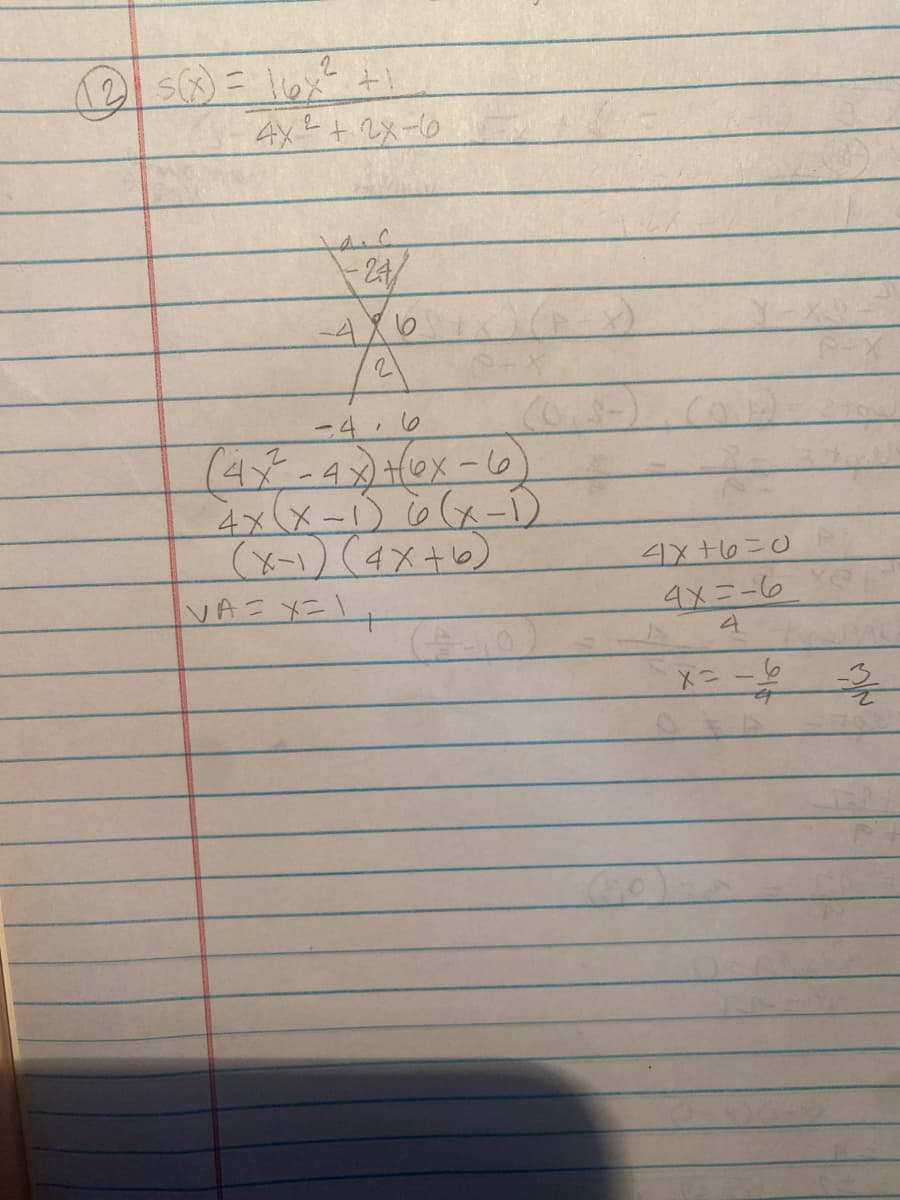 12 s(x) = 16x² + 1
4x² + 2x - 6
a.c
-24
-4 6
2
-4, 6
(4x² - 4x) + (6x - 6)
4x(x - 1) 6(x - 1)
(x-1)(4x+6)
VA = x = 1,
4x + 6 = 0
4x = -6
4
x = - 6/4 -3/2